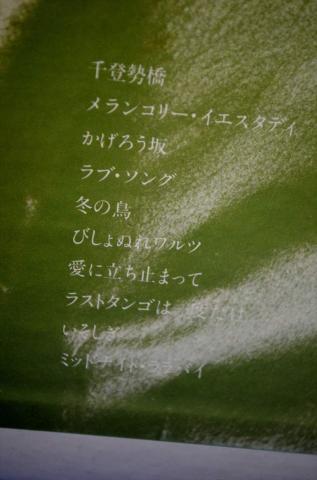 千登勢橋
メランコリー・イエスタデイ
かげろう坂
ラブ・ソング
冬の鳥
びしょぬれワルツ
愛に立ち止まって
ラストタンゴは
ミッドナイト